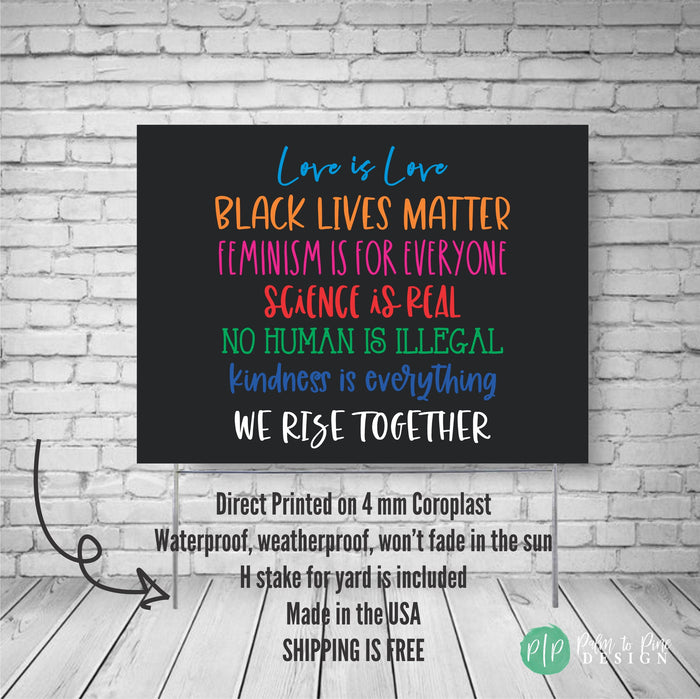 Love is Love
BLACK LIVES MATTER
FEMINISM IS FOR EVERYONE
SCiENCE iS REAL
NO HUMAN IS ILLEGAL
kindness is everything
WE RISE TOGETHER
Direct Printed on 4 mm Coroplast
Waterproof, weatherproof, won't fade in the sun
H stake for yard is included
Made in the USA
SHIPPING IS FREE
P|P Palm to Pine
DESIGN